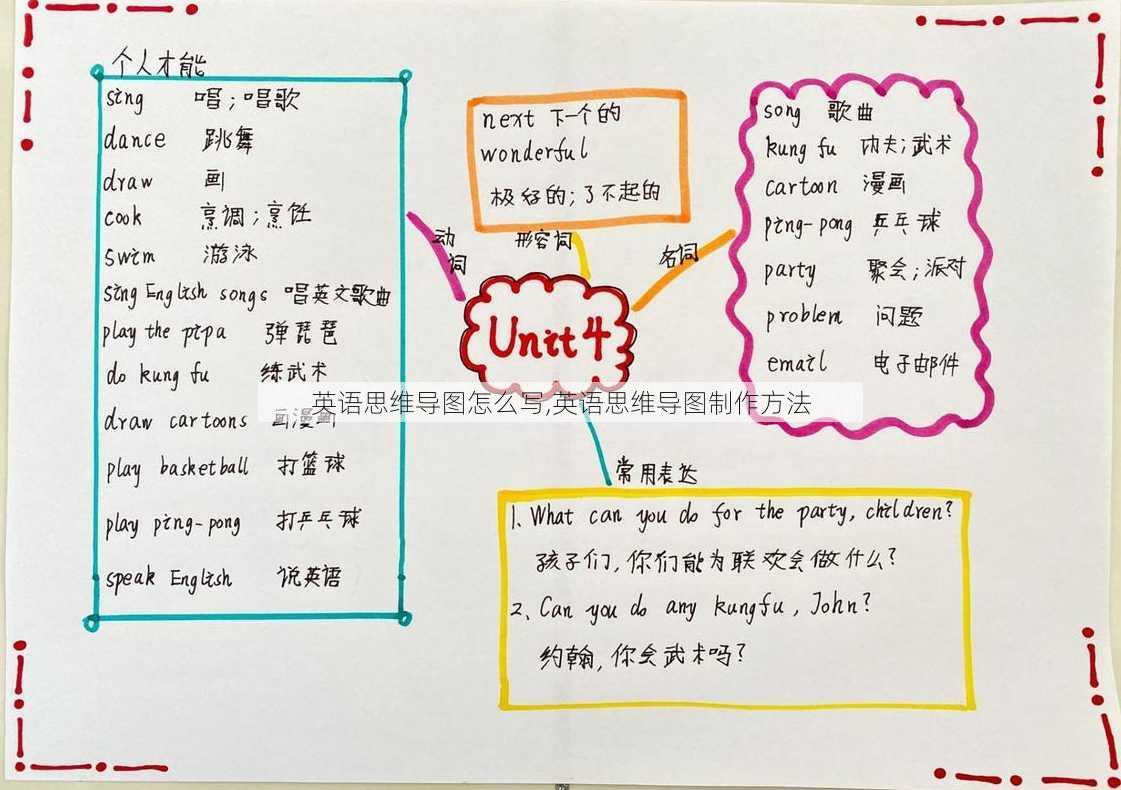 个人才能
sing 唱；唱歌
dance 跳舞
draw 画
cook 烹调；烹饪
swim 游泳
sing English songs 唱英文歌曲
play the pipa 弹琵琶
do kung fu 练武术
draw cartoons 画漫画
play basketball 打篮球
play ping-pong 打乒乓球
speak English 说英语
动词
next 下一个的
wonderful
极好的；了不起的
形容词
名词
song 歌曲
kung fu 功夫；武术
cartoon 漫画
ping-pong 乒乓球
party 聚会；派对
problem 问题
email 电子邮件
Unit 4
英语思维导图怎么写,英语思维导图制作方法
常用表达
1、What can you do for the party, children?
孩子们，你们能为联欢会做什么？
2、Can you do any kungfu, John?
约翰，你会武术吗？